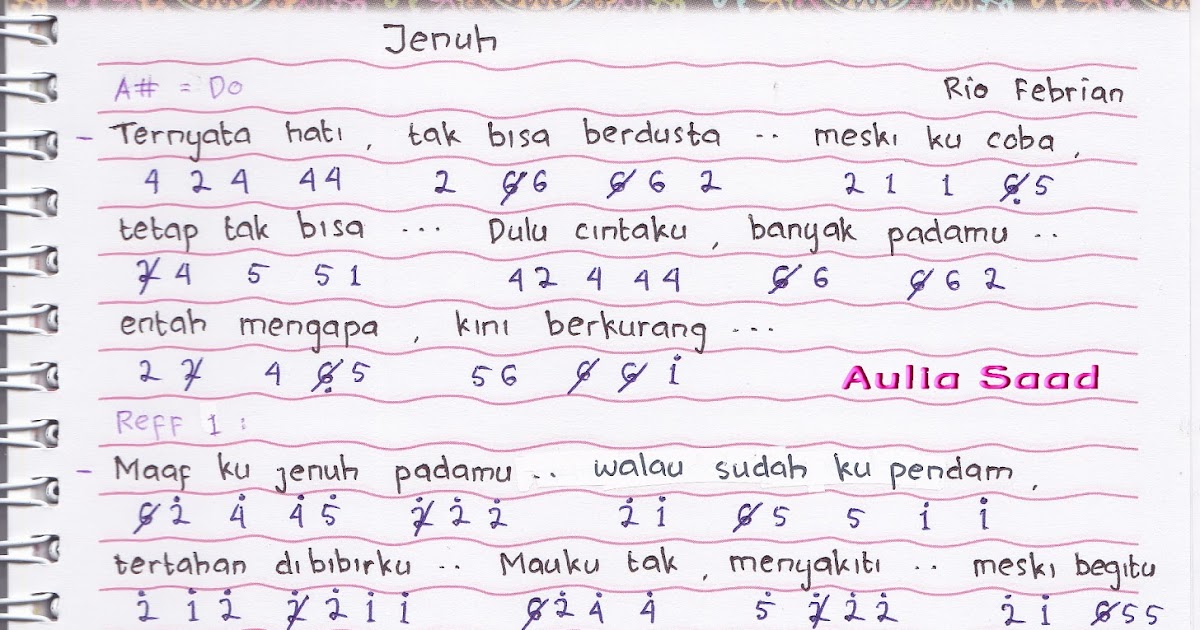 Jenuh
A# = Do Rio Febrian
- Ternyata hati, tak bisa berdusta .. meski ku coba,
4 2 4 4 4 2 6̸ 6 6̸ 6 2 2 1 1 6̸̣ 5
tetap tak bisa ... Dulu cintaku, banyak padamu ..
2̸ 4 5 5 1 4 2 4 4 4 6̸ 6 6̸ 6 2
entah mengapa, kini berkurang ...
2 2̸ 4 6̸̣ 5 5 6 6̸ 6̸ 1̇
Aulia Saad
Reff 1 :
- Maaf ku jenuh padamu .. walau sudah ku pendam,
6̸ 2̇ 4̇ 4̇ 5̇ 2̸̇ 2̇ 2̇ 2̇ 1̇ 6̸ 5 5 1̇ 1̇
tertahan dibibirku .. Mauku tak, menyakiti .. meski begitu
2̇ 1̇ 2̇ 2̸̇ 2̇ 1̇ 1̇ 6̸ 2̇ 4̇ 4̇ 5̇ 2̸̇ 2̇ 2̇ 2̇ 1̇ 6̸ 5 5